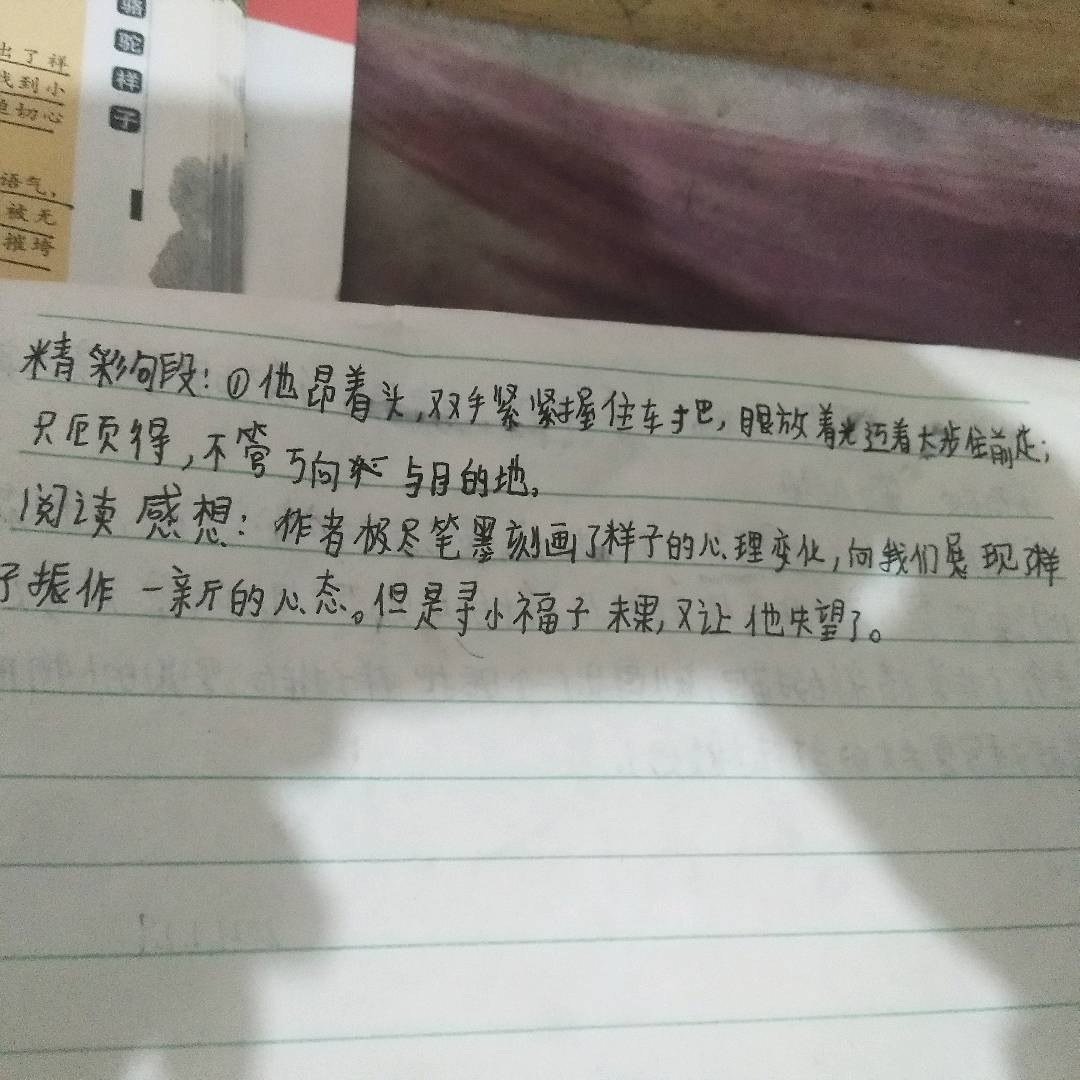 骆驼祥子
出了祥
找到小
迫切心
语气，
被无
摧垮
精彩句段：①他昂着头，双手紧紧握住车把，眼放着光迈着大步往前走；
只顾得，不管丂向 与目的地。
阅读感想：作者极尽笔墨刻画了样子的心理变化，向我们展现祥
子振作一新斤的心态。但是寻小福子未果，又让他失望了。